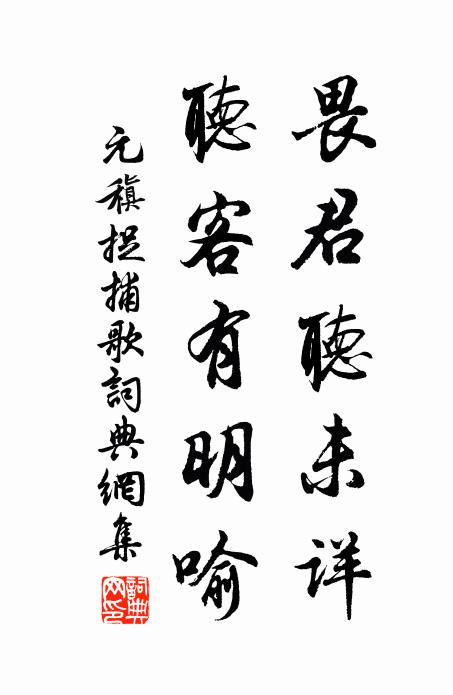 畏君聽未詳
聽客有明喻
元稹捉捕歌詞典網集
詞典網印